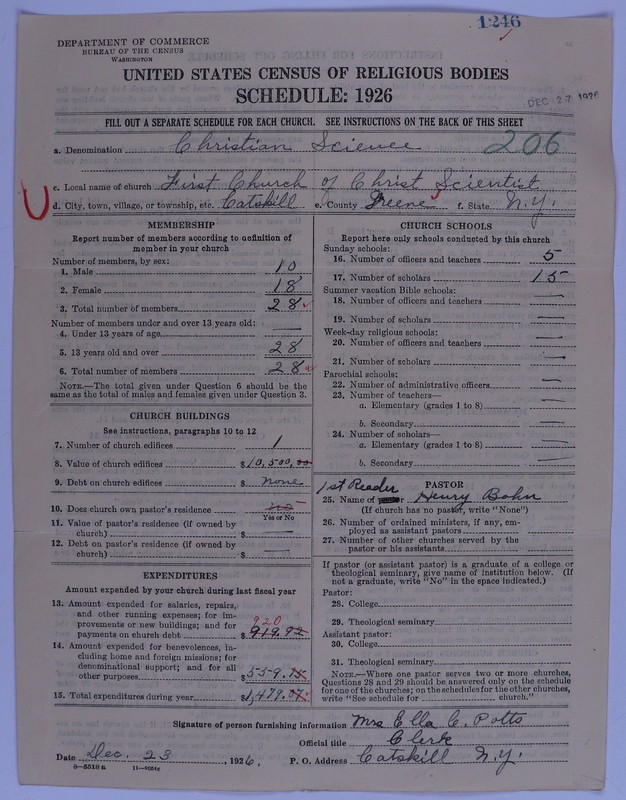 1246
DEPARTMENT OF COMMERCE
BUREAU OF THE CENSUS
WASHINGTON
UNITED STATES CENSUS OF RELIGIOUS BODIES
SCHEDULE: 1926
DEC 27 1926
FILL OUT A SEPARATE SCHEDULE FOR EACH CHURCH. SEE INSTRUCTIONS ON THE BACK OF THIS SHEET
a. Denomination Christian Science 206
c. Local name of church First Church of Christ Scientist
d. City, town, village, or township, etc. Catskill e. County Greene f. State N.Y.
MEMBERSHIP
Report number of members according to definition of
member in your church
Number of members, by sex:
1. Male 10
2. Female 18
3. Total number of members 28
Number of members under and over 13 years old:
4. Under 13 years of age —
5. 13 years old and over 28
6. Total number of members 28
NOTE.—The total given under Question 6 should be the
same as the total of males and females given under Question 3.
CHURCH BUILDINGS
See instructions, paragraphs 10 to 12
7. Number of church edifices 1
8. Value of church edifices $10,500,00
9. Debt on church edifices $ None
10. Does church own pastor's residence no
Yes or No
11. Value of pastor's residence (if owned by
church) $ —
12. Debt on pastor's residence (if owned by
church) $ —
EXPENDITURES
Amount expended by your church during last fiscal year
13. Amount expended for salaries, repairs,
and other running expenses; for im-
provements or new buildings; and for 920
payments on church debt $919.92
14. Amount expended for benevolences, in-
cluding home and foreign missions; for
denominational support; and for all
other purposes $559.15
15. Total expenditures during year $1,479.07
CHURCH SCHOOLS
Report here only schools conducted by this church
Sunday schools:
16. Number of officers and teachers 5
17. Number of scholars 15
Summer vacation Bible schools:
18. Number of officers and teachers —
19. Number of scholars —
Week-day religious schools:
20. Number of officers and teachers —
21. Number of scholars —
Parochial schools:
22. Number of administrative officers —
23. Number of teachers—
a. Elementary (grades 1 to 8) —
b. Secondary —
24. Number of scholars—
a. Elementary (grades 1 to 8) —
b. Secondary —
1st Reader PASTOR
25. Name of pastor Henry Bohn
(If church has no pastor, write "None")
26. Number of ordained ministers, if any, em-
ployed as assistant pastors
27. Number of other churches served by the
pastor or his assistants
If pastor (or assistant pastor) is a graduate of a college or
theological seminary, give name of institution below. (If
not a graduate, write "No" in the space indicated.)
Pastor:
28. College
29. Theological seminary
Assistant pastor:
30. College
31. Theological seminary
NOTE.—Where one pastor serves two or more churches,
Questions 28 and 29 should be answered only on the schedule
for one of the churches; on the schedules for the other churches,
write "See schedule for church."
Signature of person furnishing information Mrs Ella C. Potts
Official title Clerk
Date Dec. 23, 1926, P. O. Address Catskill N.Y.
8—5518 a 11—9054